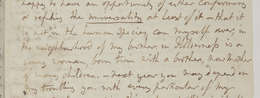 happy to have an opportunity of either confirming
or refuting the universality at least of it – that it
is not in the human species can myself aver, in
the neighbourhood of my brother in
young woman born twin with a brother, now mother
of children – next year you may depend on
my troubling you with every particular of my